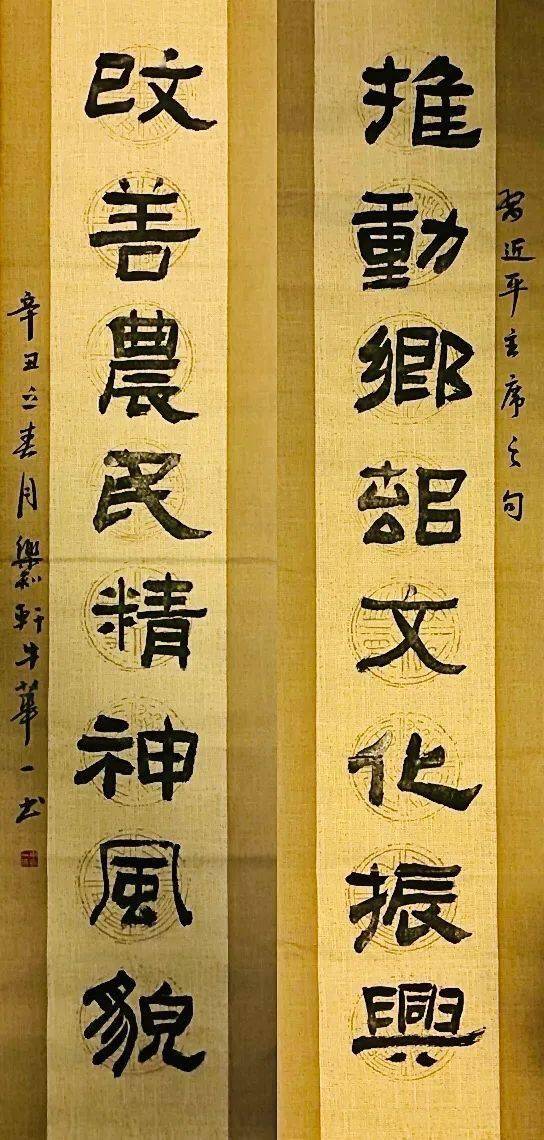 習近平主席之句
推動鄉邨文化振興
改善農民精神風貌
辛丑之春月樂和軒牛華一书